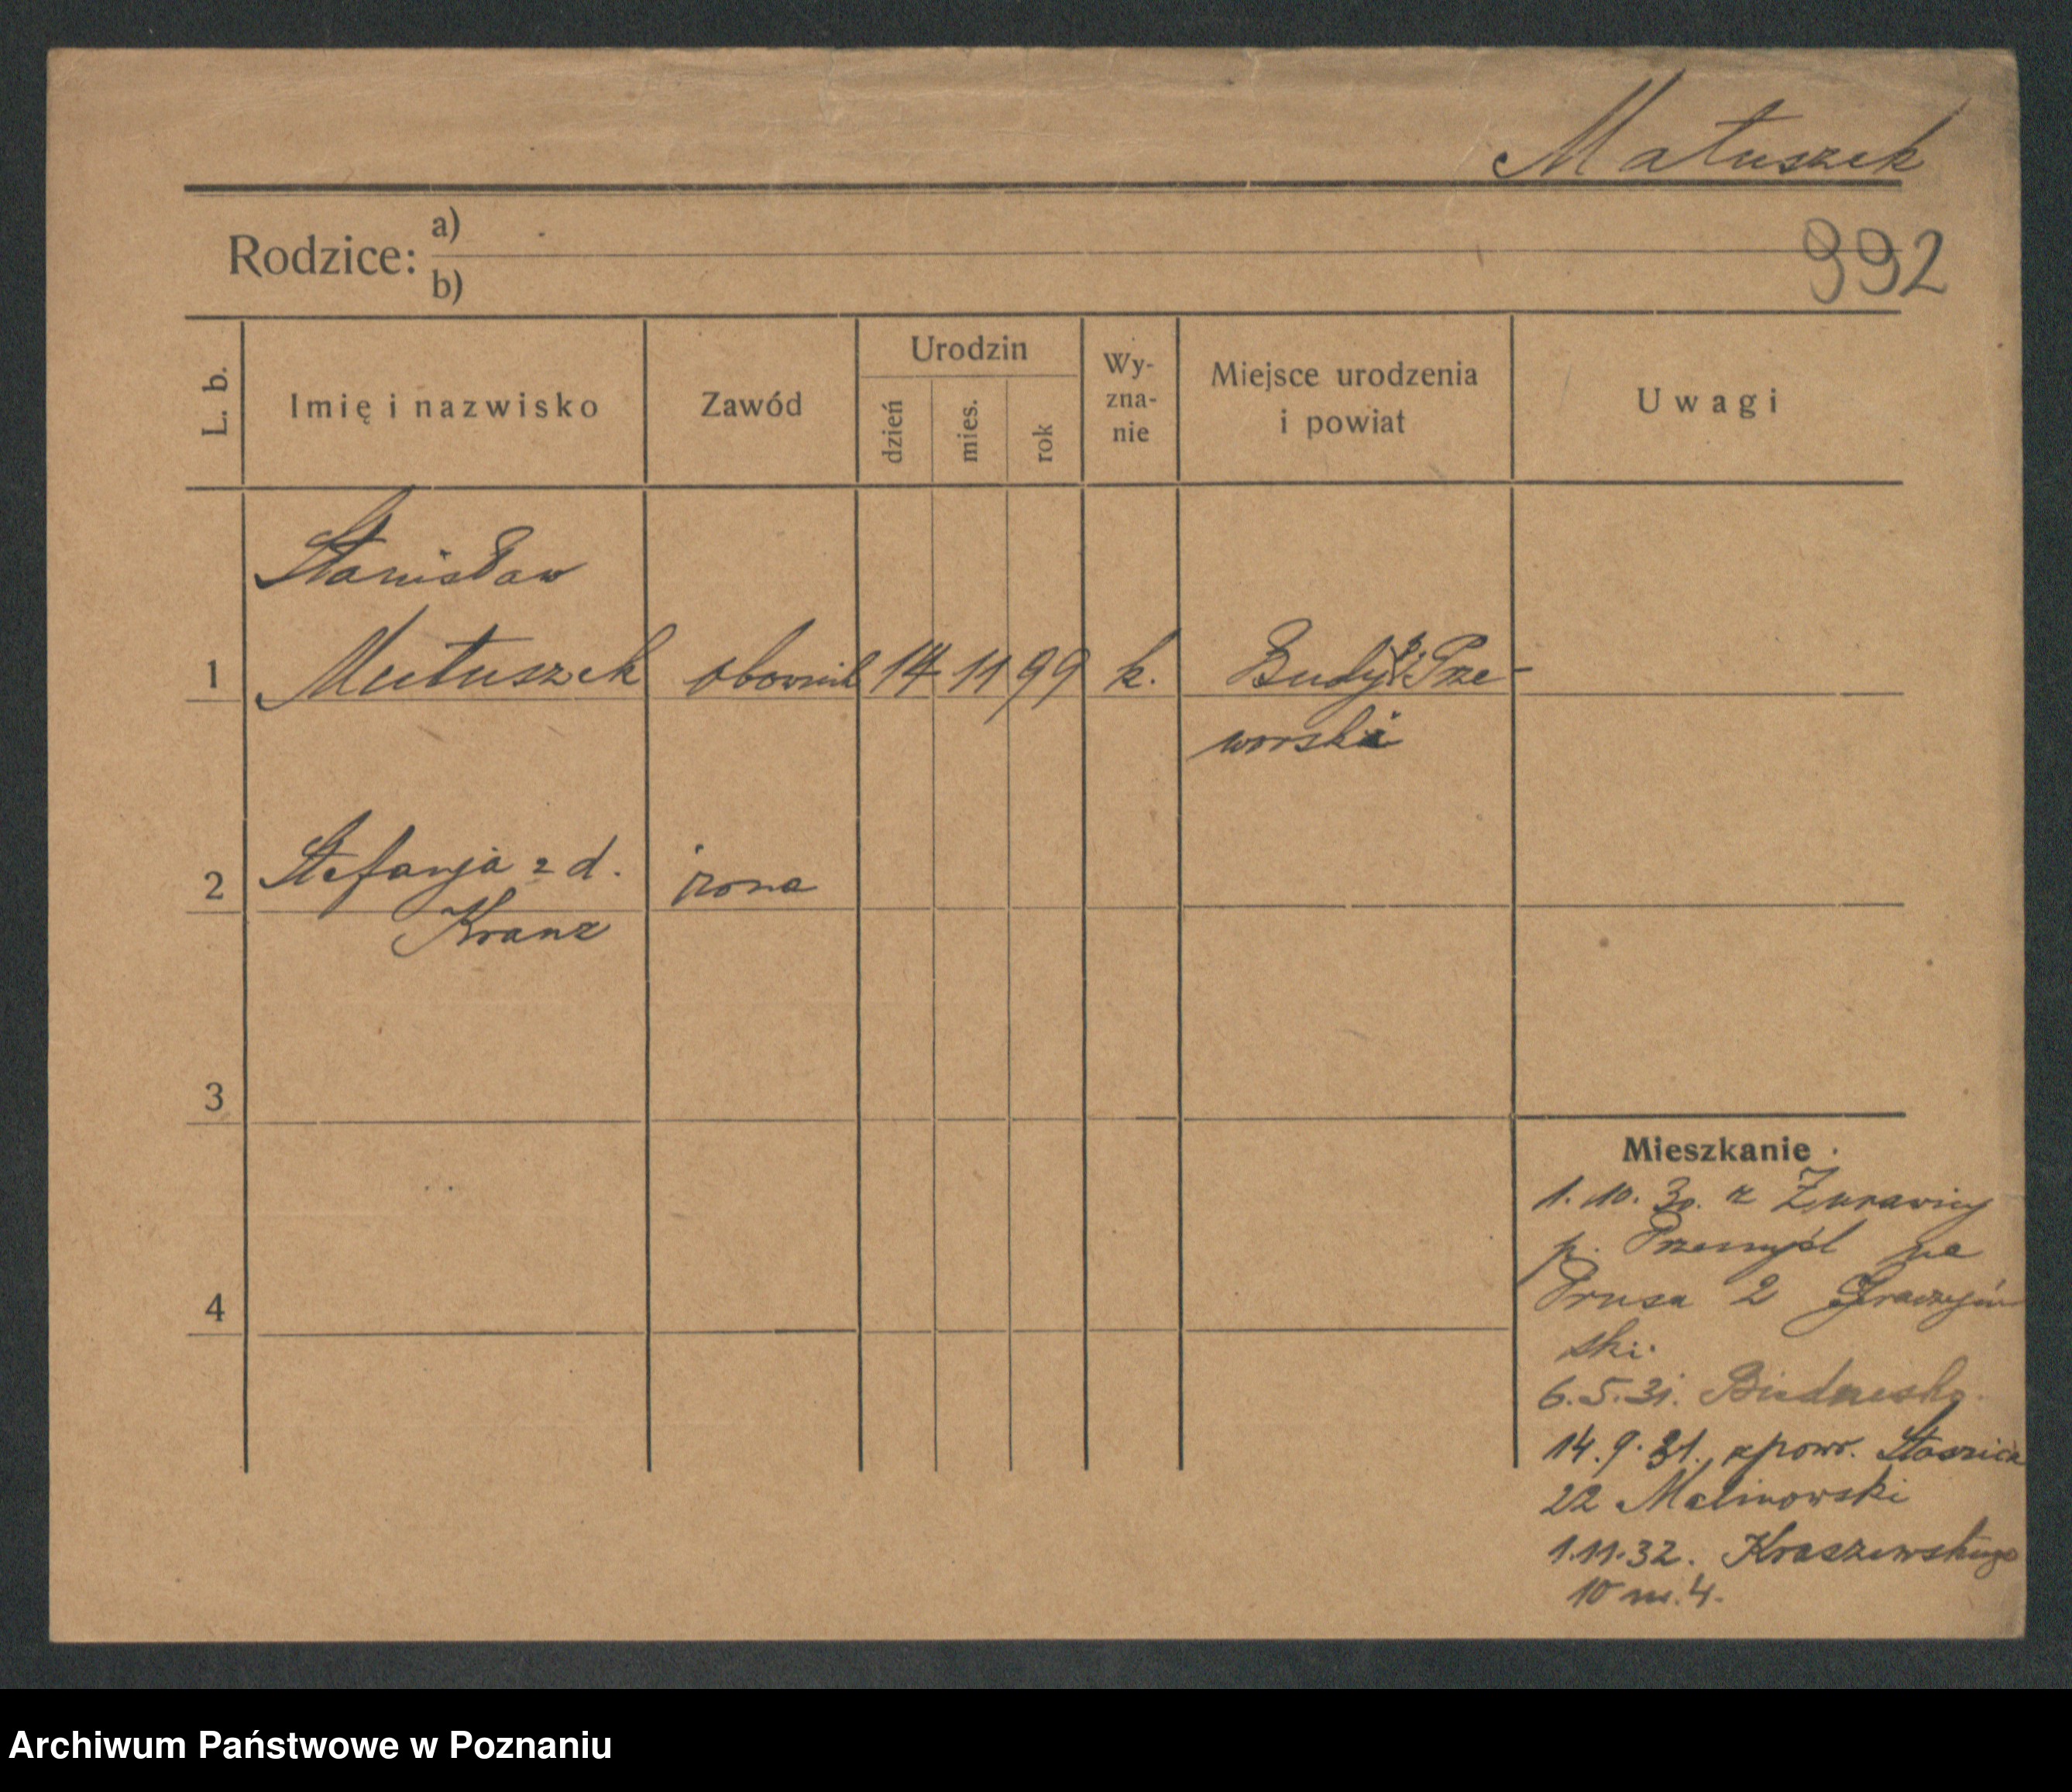 Matuszek
Rodzice: a)
b)
992
L. b.
Imię i nazwisko
Zawód
Urodzin
dzień
mies.
rok
Wy-
zna-
nie
Miejsce urodzenia
i powiat
Uwagi
Stanisław
1 Matuszek 14 11 99 k. Budy Prze-
worski
2 Stefanja z d. żona
Kranz
3
4
Mieszkanie
1. 10. 30. z Żurawicy
p. Przemyśl na
Prusa 2
ski.
6. 5. 31. Biedrusko.
14. 9. 31. zpowr. Staszica
22 Malinowski
1. 11. 32. Kraszewskiego
10 m. 4.
Archiwum Państwowe w Poznaniu